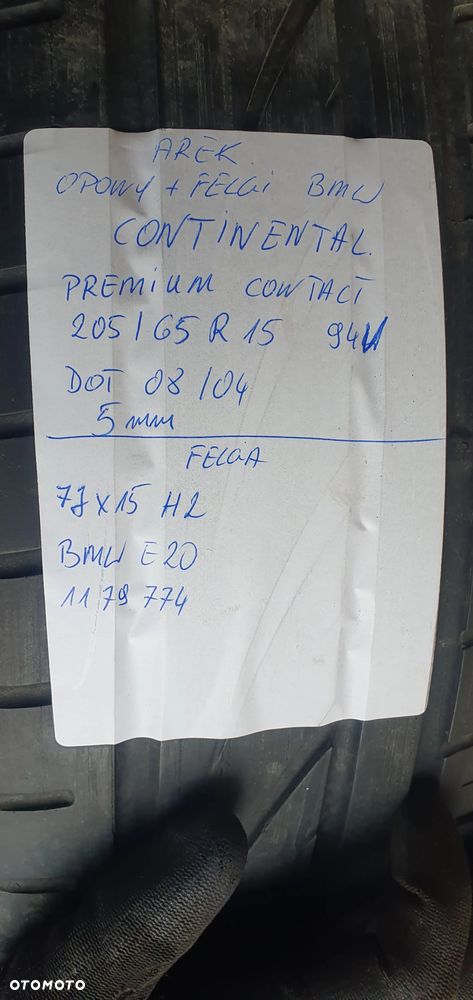 AREK.
OPONY + FELGI BMW
CONTINENTAL.
PREMIUM CONTACT
205/65 R 15 94V
DOT 08/04
5 mm
FELGA
7J x 15 H2
BMW E20
1179 774
OTOMOTO